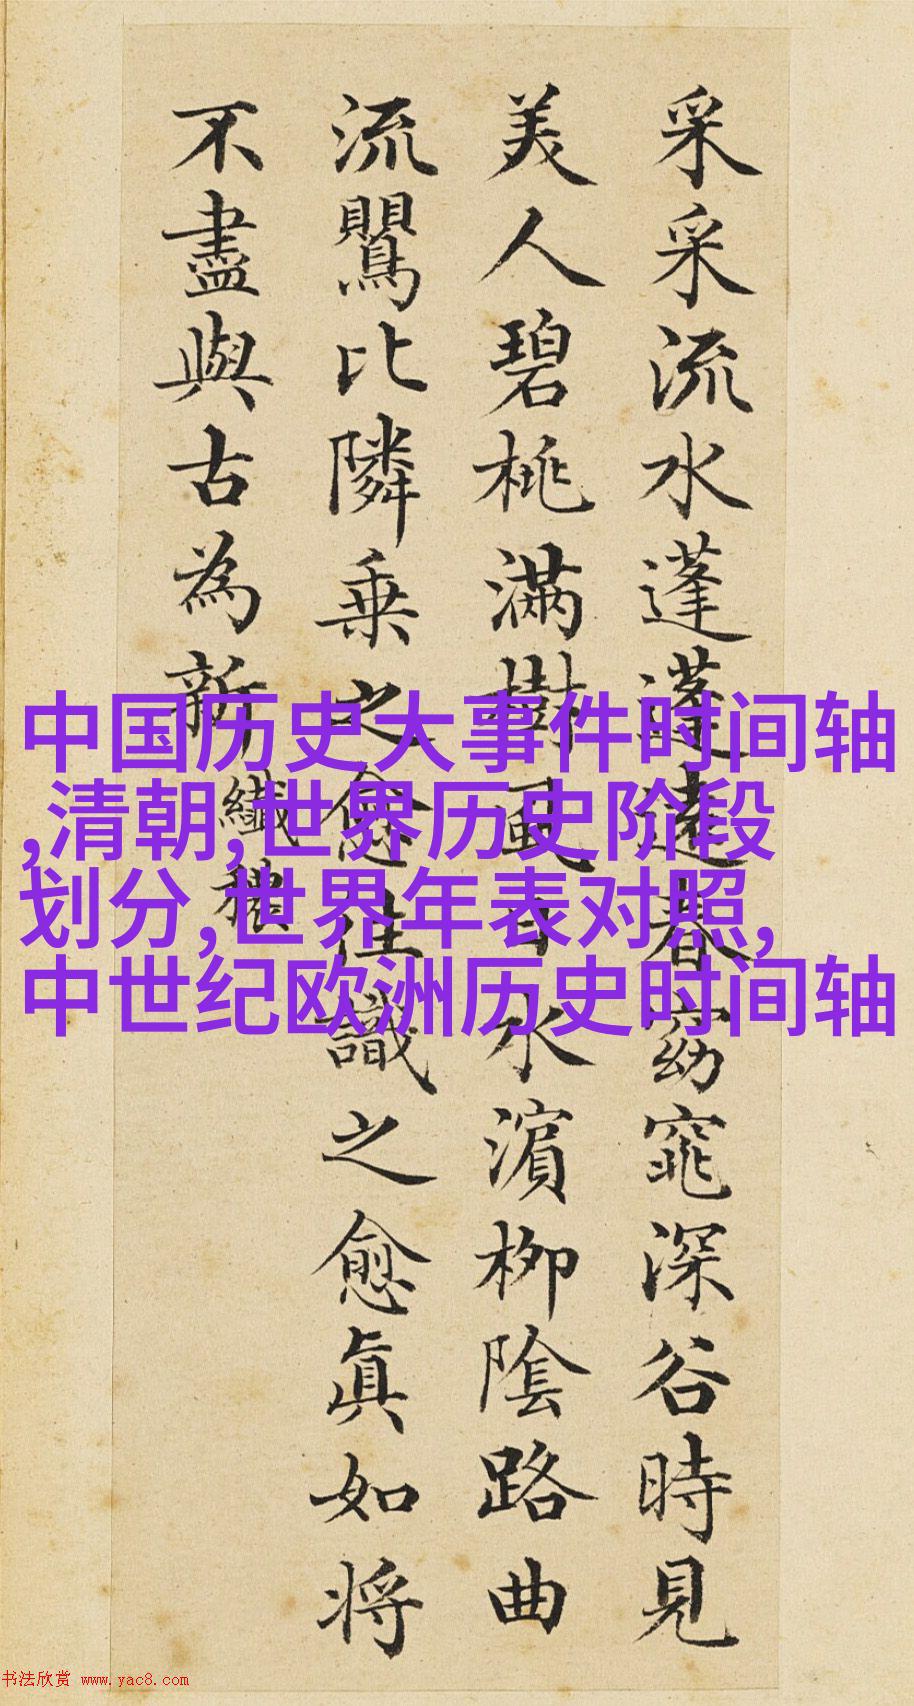 采采流水蓬蓬遠春窈窕深谷時見
美人碧桃滿樹風日水濵柳陰路曲
流鸎比隣乗之愈往識之愈眞如将
不盡與古為新
纖穠
中国历史大事件时间轴
,清朝,世界历史阶段
划分,世界年表对照,
中世纪欧洲历史时间轴
书法欣赏 www.yac8.com